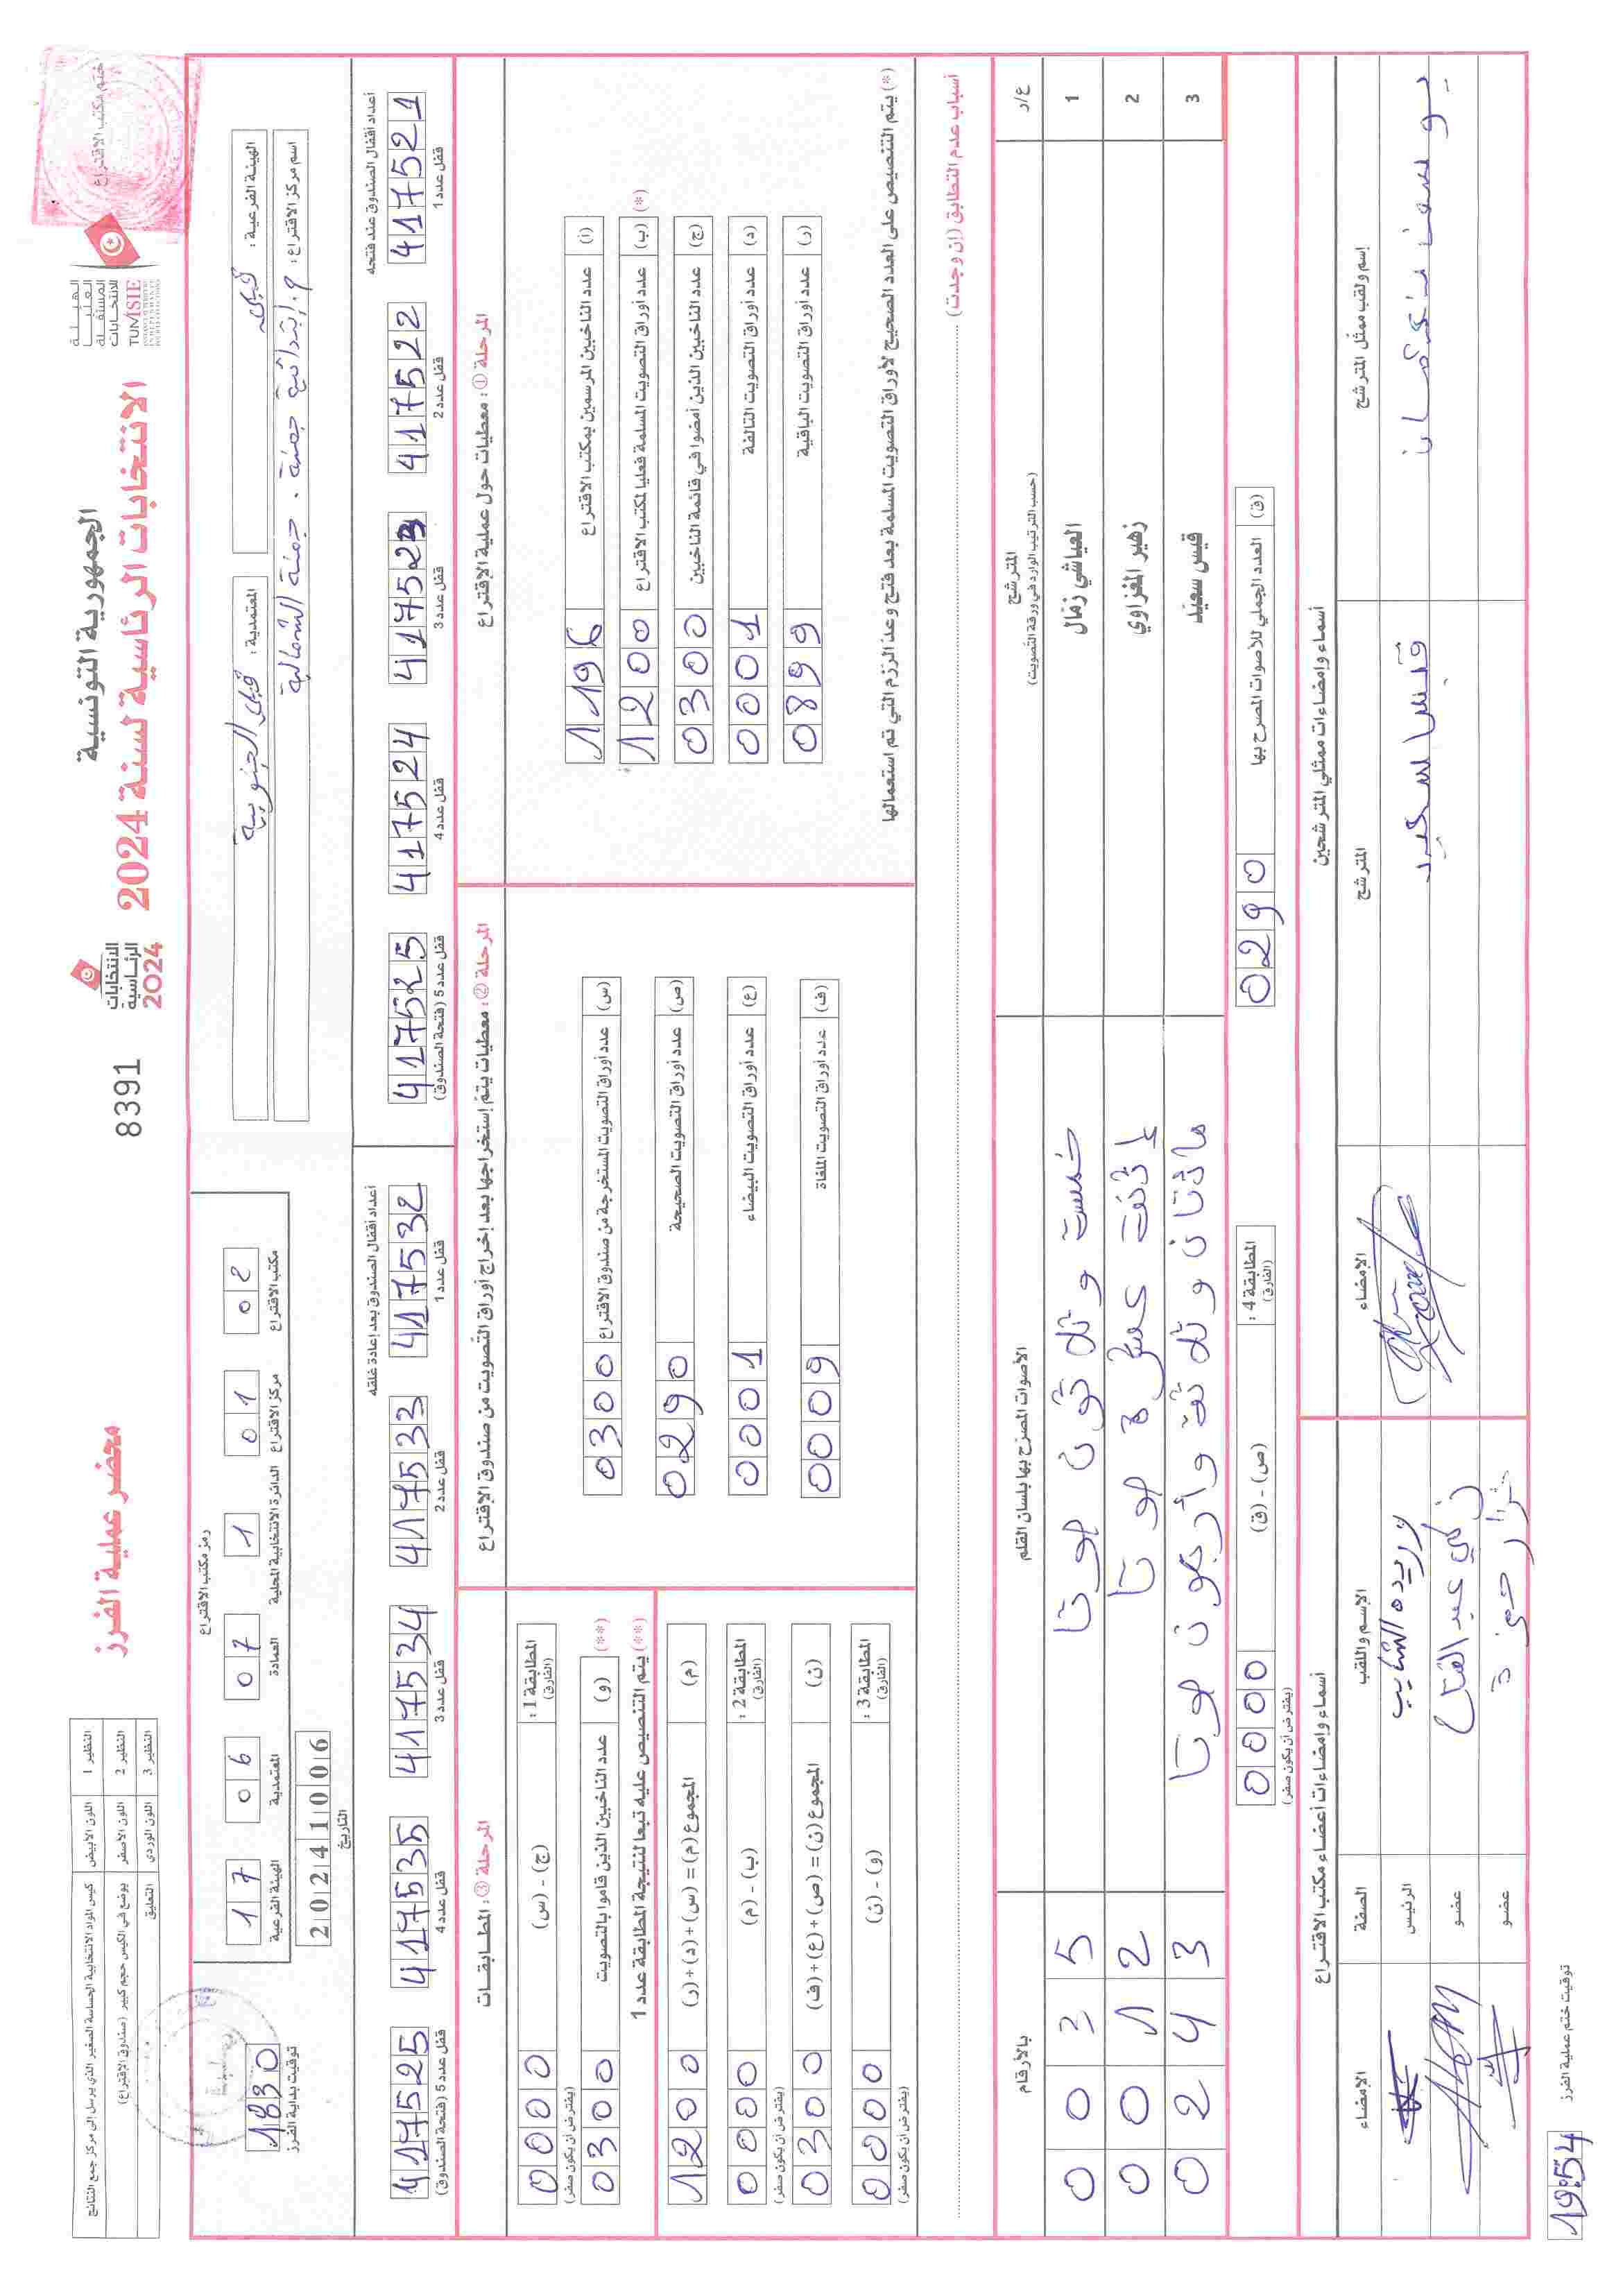 الجمهورية التونسية
الانتخابات الرئاسية لسنة 2024
الهيئة
العليا
المستقلة
للانتخابات
TUNISIE
ختم مكتب الاقتراع
الانتخابات
الرئاسية
2024
8391
محضر عملية الفرز
النظير 1 اللون الأبيض كيس المواد الانتخابية الحساسة الصغير الذي يرسل إلى مركز جمع النتائج
النظير 2 اللون الأصفر يوضع في الكيس حجم كبير (صندوق الاقتراع)
النظير 3 اللون الوردي التعليق
الهيئة الفرعية : قبلي
المعتمدية : قبلي الجنوبية
اسم مركز الاقتراع : م. إبتدائية جمنة . جمنة الشمالية
رمز مكتب الاقتراع
مكتب الاقتراع 02
مركز الاقتراع 01
الدائرة الانتخابية المحلية 1
العمادة 07
المعتمدية 06
الهيئة الفرعية 17
20241006
التاريخ
1830
توقيت بداية الفرز
أعداد أقفال الصندوق عند فتحه
417521 قفل عدد 1
417522 قفل عدد 2
417523 قفل عدد 3
417524 قفل عدد 4
417525 قفل عدد 5 (فتحة الصندوق)
أعداد أقفال الصندوق بعد إعادة غلقه
417532 قفل عدد 1
417533 قفل عدد 2
417534 قفل عدد 3
417535 قفل عدد 4
417525 قفل عدد 5 (فتحة الصندوق)
المرحلة ① : معطيات حول عملية الإقتراع
(أ) عدد الناخبين المرسمين بمكتب الاقتراع 1196
(*) (ب) عدد أوراق التصويت المسلمة فعليا لمكتب الاقتراع 1200
(ج) عدد الناخبين الذين أمضوا في قائمة الناخبين 0300
(د) عدد أوراق التصويت التالفة 0001
(ر) عدد أوراق التصويت الباقية 0899
(*) يتم التنصيص على العدد الصحيح لأوراق التصويت المسلمة بعد فتح وعد الرزم التي تم استعمالها
المرحلة ② : معطيات يتم إستخراجها بعد إخراج أوراق التصويت من صندوق الإقتراع
(س) عدد أوراق التصويت المستخرجة من صندوق الاقتراع 0300
(ص) عدد أوراق التصويت الصحيحة 0290
(ع) عدد أوراق التصويت البيضاء 0001
(ف) عدد أوراق التصويت الملغاة 0009
المرحلة ③ : المطابقات
المطابقة 1 : (الفارق) (ج) - (س) 0000
(يفترض أن يكون صفر)
(**) (و) عدد الناخبين الذين قاموا بالتصويت 0300
(**) يتم التنصيص عليه تبعا لنتيجة المطابقة عدد 1
(م) المجموع (م) = (س) + (د) + (ر) 1200
المطابقة 2 : (الفارق) (ب) - (م) 0000
(يفترض أن يكون صفر)
(ن) المجموع (ن) = (ص) + (ع) + (ف) 0300
المطابقة 3 : (الفارق) (و) - (ن) 0000
(يفترض أن يكون صفر)
أسباب عدم التطابق (إن وجدت)
ع/ر المترشح (حسب الترتيب الوارد في ورقة التصويت) الأصوات المصرح بها بلسان القلم بالأرقام
1 العياشي زمال خمسة وثلاثون صوتا 0035
2 زهير المغزاوي إثنى عشرة صوتا 0012
3 قيس سعيد مائتان وثلاثة وأربعون صوتا 0243
(ق) العدد الجملي للأصوات المصرح بها 0290
المطابقة 4 : (الفارق) (ص) - (ق) 0000
(يفترض أن يكون صفر)
أسماء وإمضاءات ممثلي المترشحين
إسم ولقب ممثل المترشح المترشح الإمضاء
قيس سعيد
أسماء وإمضاءات أعضاء مكتب الاقتراع
الإسم واللقب الصفة الإمضاء
الرئيس
عبد الفتاح عضو
عضو
توقيت ختم عملية الفرز 19:54